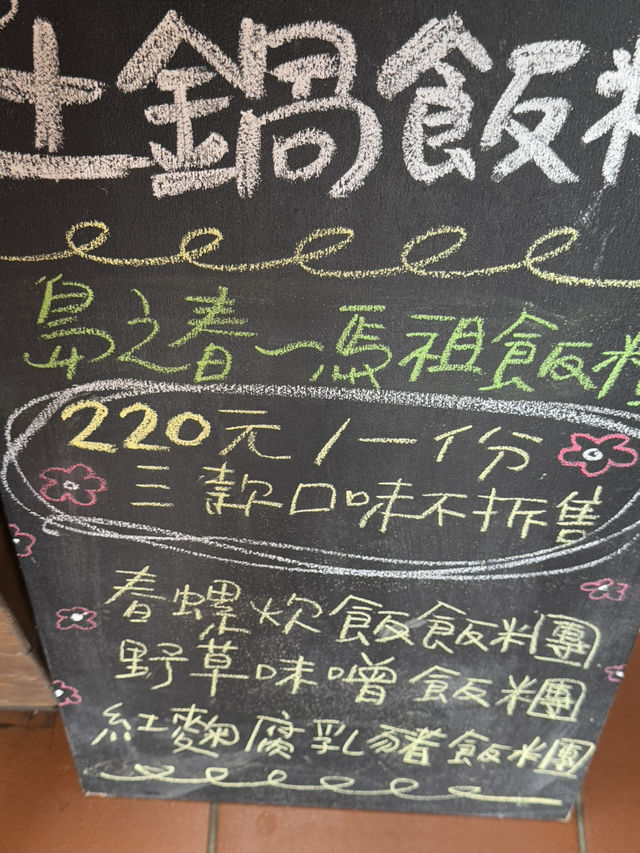 土鍋飯
島之春～馬祖飯
220元/一份
三款口味不拆售
春螺炊飯飯糰
野草味噌飯糰
紅麴腐乳豬飯糰